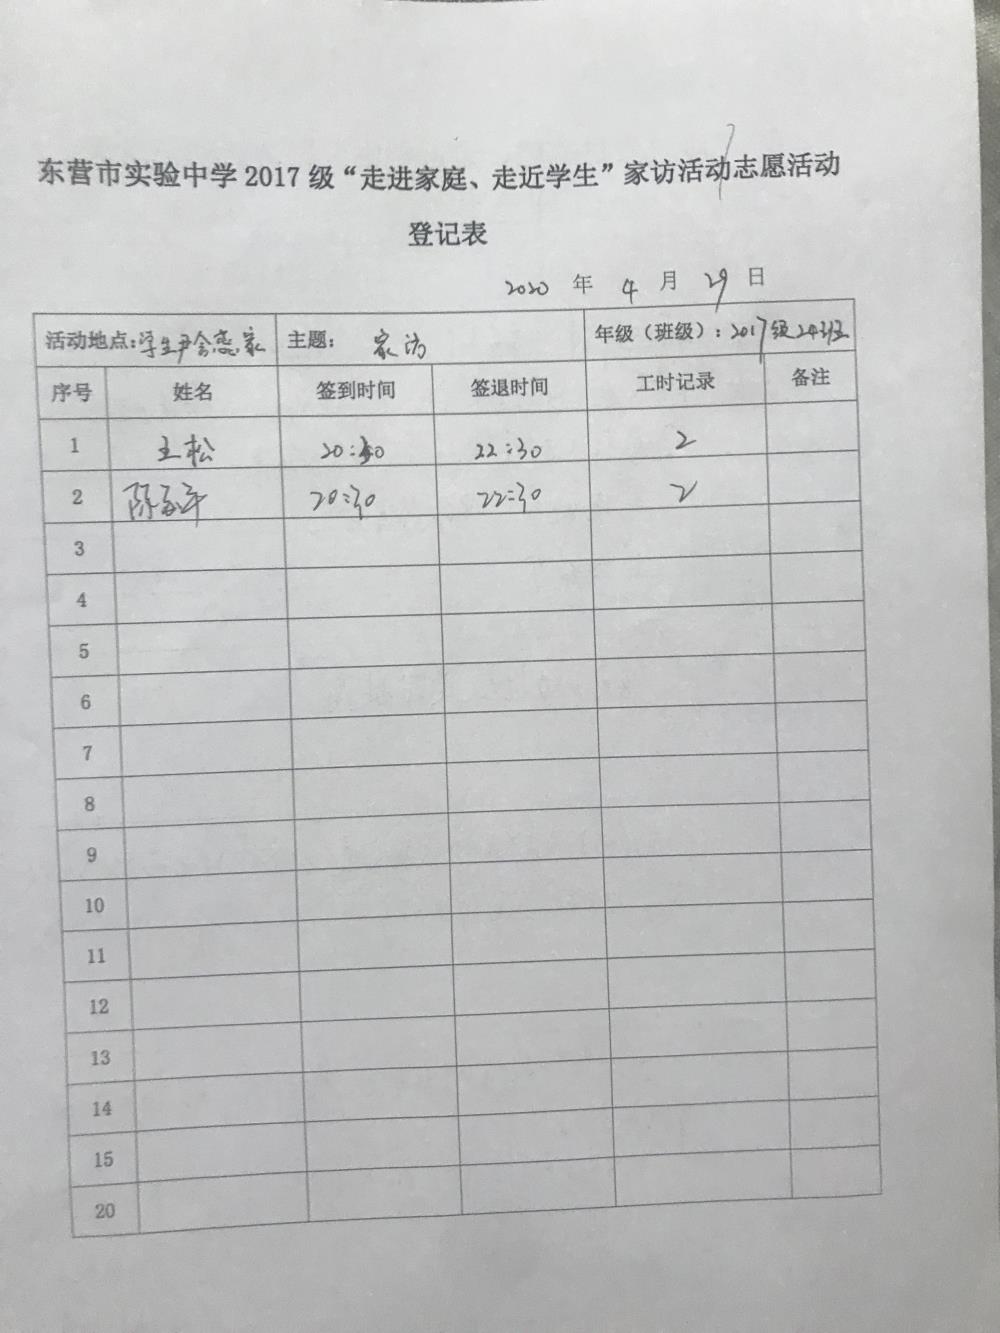 东营市实验中学2017级“走进家庭、走近学生”家访活动志愿活动
登记表
2020 年 4 月 29 日
活动地点:学生尹含蕊家 主题: 家访 年级（班级）: 2017级24班
序号 姓名 签到时间 签退时间 工时记录 备注
1 王松 20:30 22:30 2
2 陈 20:30 22:30 2
3
4
5
6
7
8
9
10
11
12
13
14
15
20